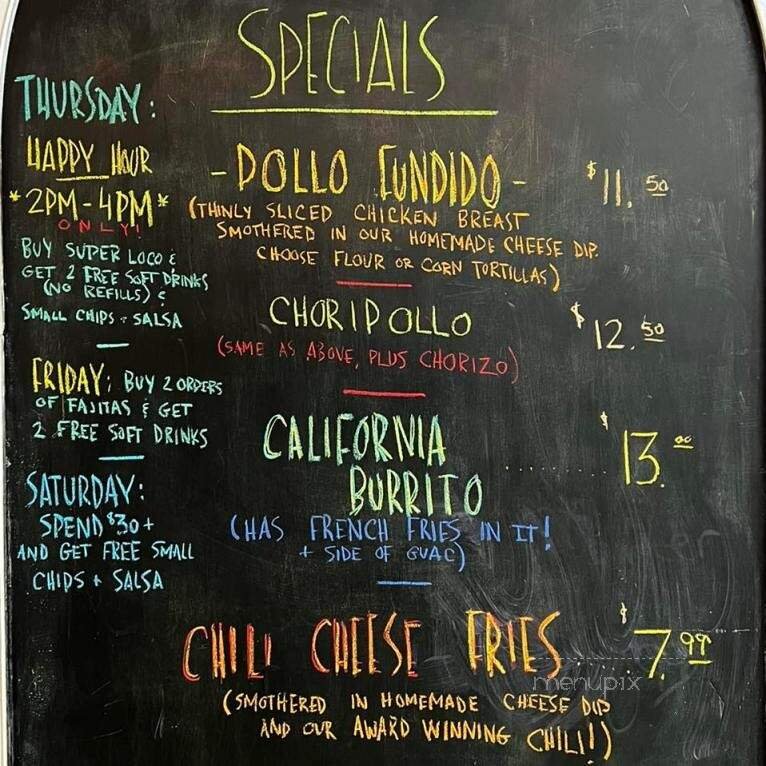 SPECIALS
THURSDAY:
HAPPY HOUR
*2PM-4PM*
ONLY!
BUY SUPER LOCO &
GET 2 FREE SOFT DRINKS
(NO REFILLS) &
SMALL CHIPS + SALSA
FRIDAY: BUY 2 ORDERS
OF FAJITAS & GET
2 FREE SOFT DRINKS
SATURDAY:
SPEND $30+
AND GET FREE SMALL
CHIPS + SALSA
- POLLO FUNDIDO - $11.50
(THINLY SLICED CHICKEN BREAST
SMOTHERED IN OUR HOMEMADE CHEESE DIP.
CHOOSE FLOUR OR CORN TORTILLAS)
CHORIPOLLO $12.50
(SAME AS ABOVE, PLUS CHORIZO)
CALIFORNIA
BURRITO ........ $13.00
(HAS FRENCH FRIES IN IT!
+ SIDE OF GUAC)
CHILI CHEESE FRIES.... $7.99
(SMOTHERED IN HOMEMADE CHEESE DIP
AND OUR AWARD WINNING CHILI!)
menupix